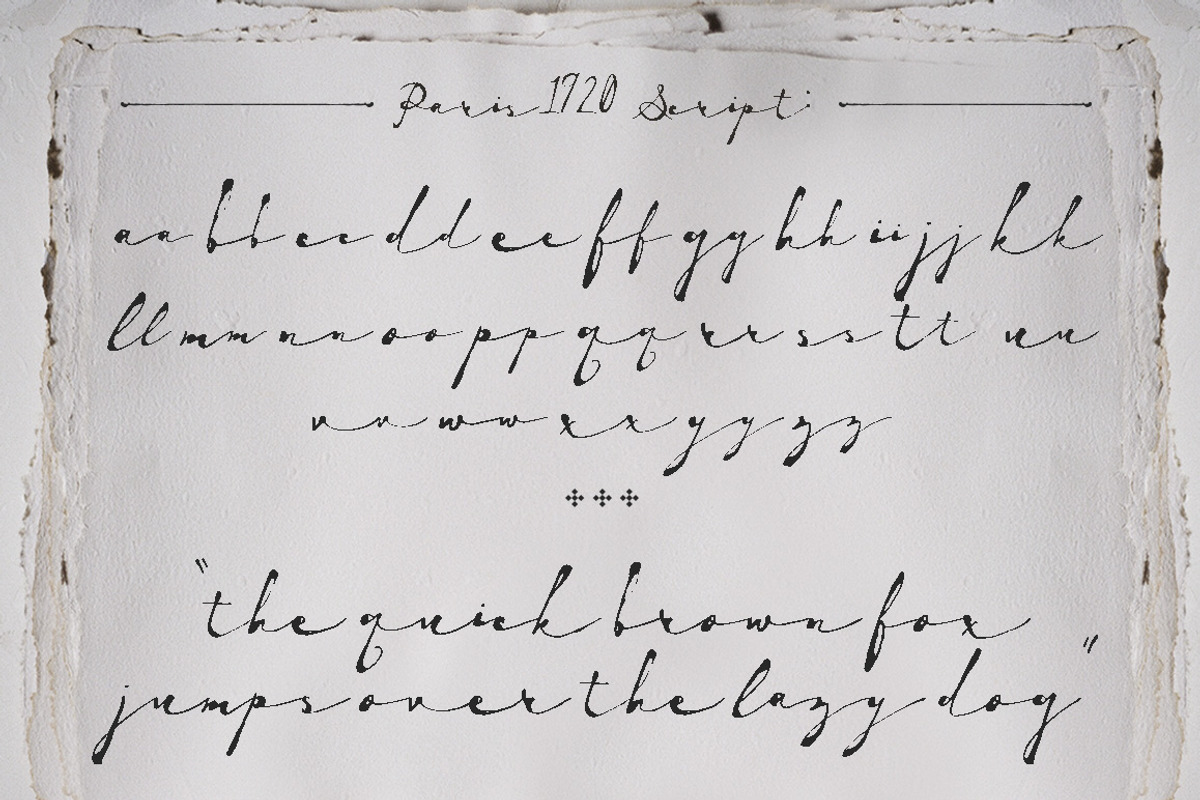 Paris 1920 Script
aa bb cc dd ee ff gg hh ii jj kk
ll mm nn oo pp qq rr ss tt uu
vv ww xx yy zz
"the quick brown fox
jumps over the lazy dog"